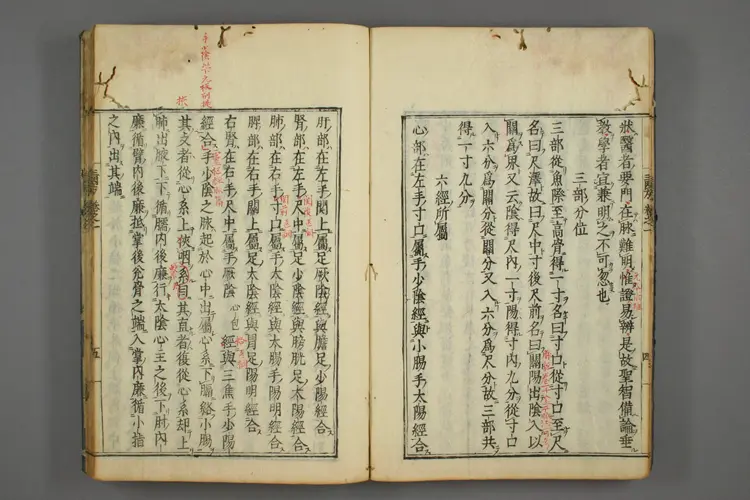 狀醫者要門在脉難明惟證易辨是故聖智備論垂
教學者宜兼明之不可忽也
三部分位
三部從魚際至高骨得一寸名曰寸口從寸口至尺
名曰尺澤故曰尺中寸後尺前名曰關陽出陰入以
關爲界又云陰得尺內一寸陽得寸內九分從寸口
入六分爲關分從關分又入六分爲尺分故三部共
得一寸九分
六經所屬
心部在左手寸口屬手少陰經與小腸手太陽經合
肝部在左手關上屬足厥陰經與膽足少陽經合
腎部在左手尺中屬足少陰經與膀胱足太陽經合
肺部在右手寸口屬手太陰經與大腸手陽明經合
脾部在右手關上屬足太陰經與胃足陽明經合
右腎在右手尺中屬手厥陰心包經與三焦手少陽
經合手少陰之脉起於心中出屬心系下膈絡小腸
其支者從心系上俠咽系目其直者復從心系却上
肺出腋下下循臑內後廉行太陰心主之後下肘內
廉循臂內後廉抵掌後兌骨之端入掌內廉循小指
之內出其端